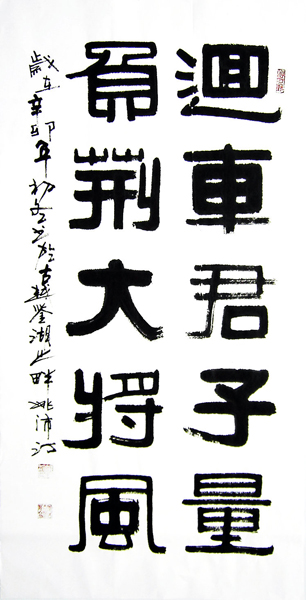 迴車君子量
負荊大將風
歲在辛卯年初冬书於古越鑒湖之畔 姚沛